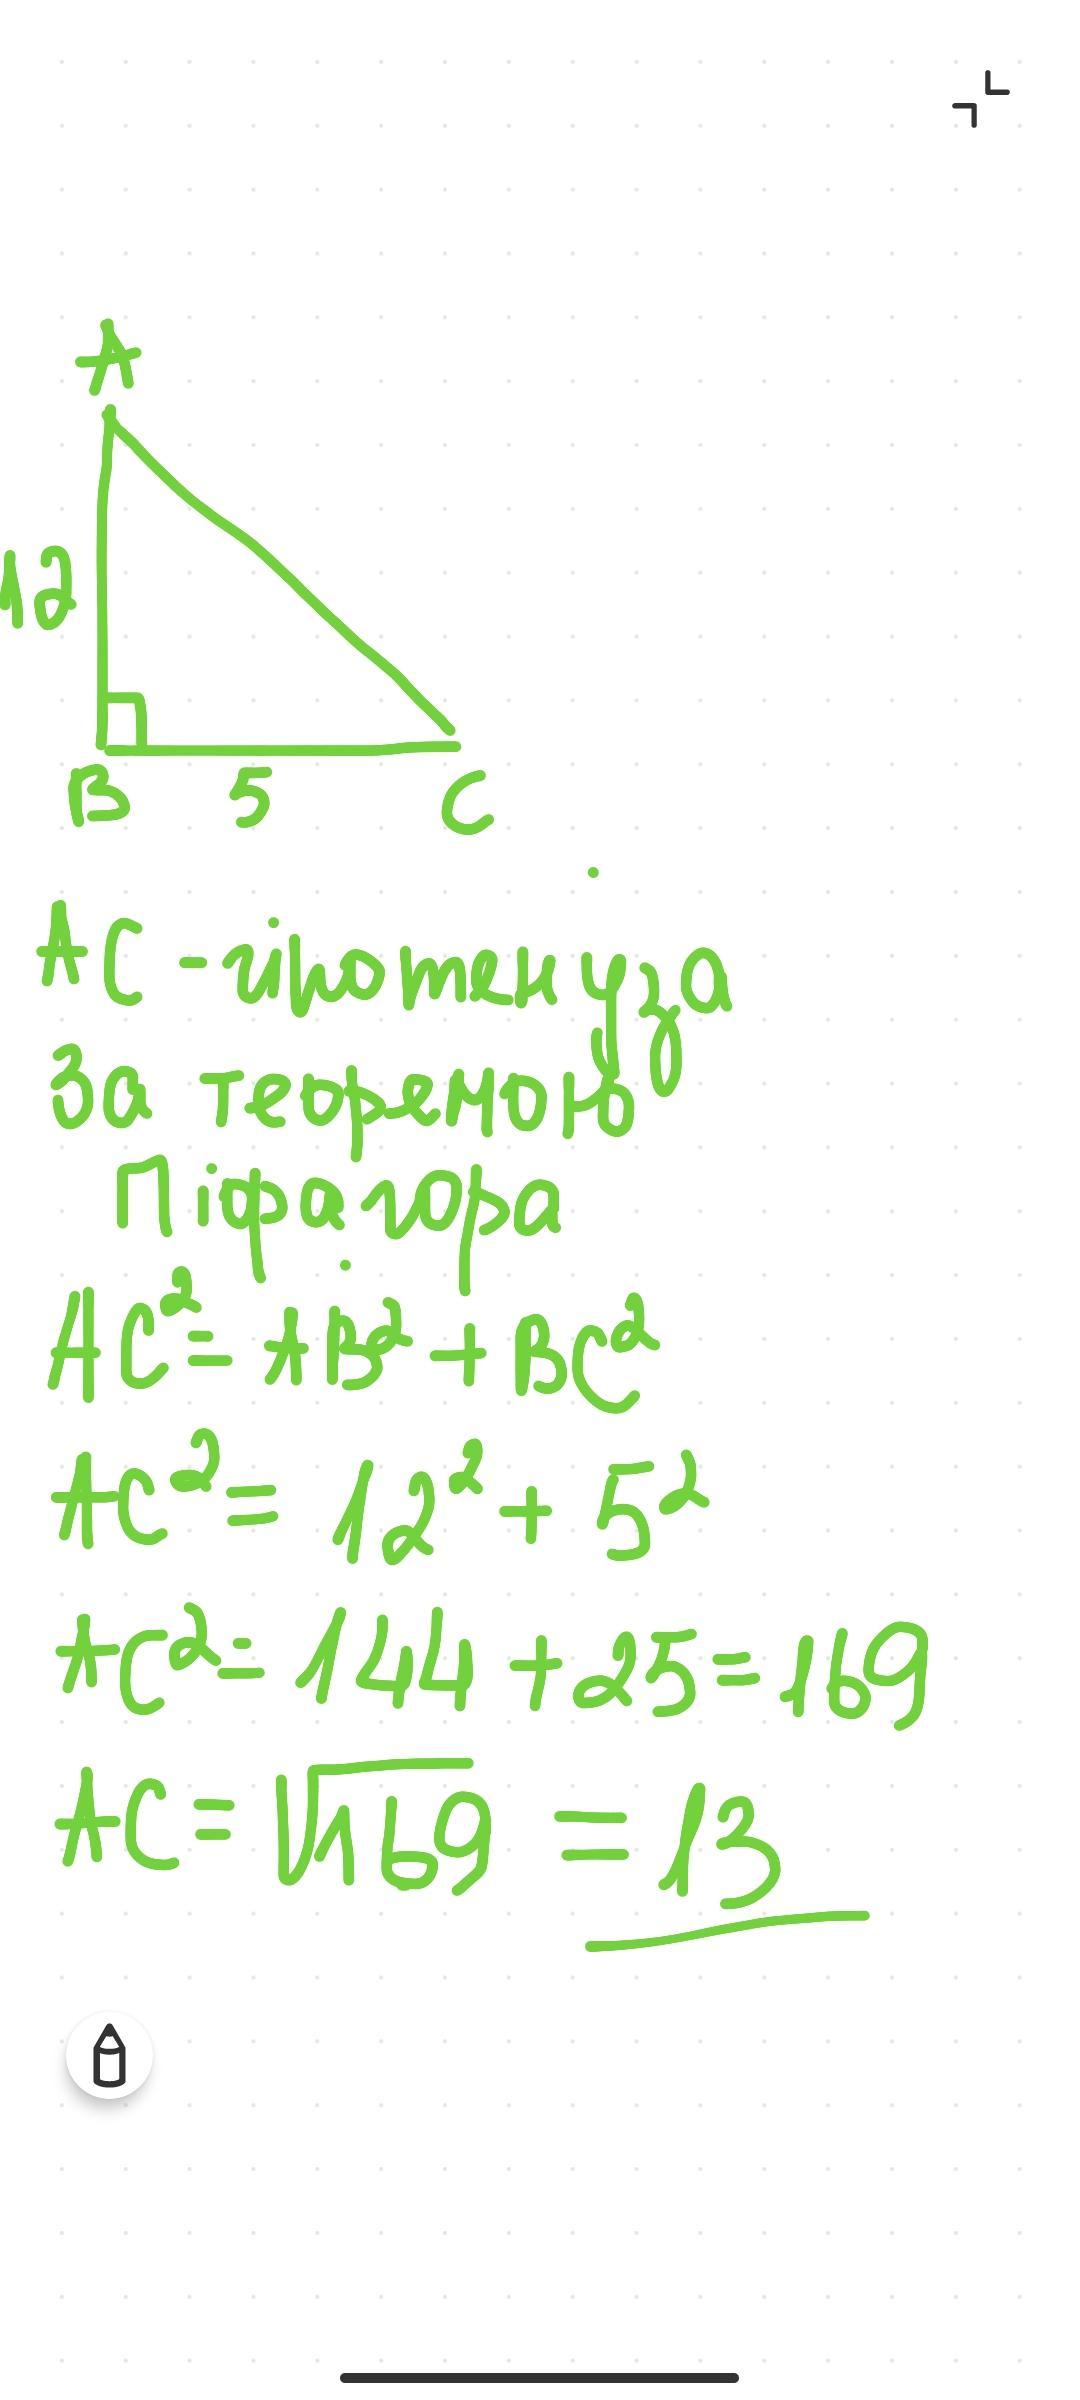 A
12
B 5 C
AC - гіпотенуза
За теоремою
Піфагора
AC² = AB² + BC²
AC² = 12² + 5²
AC² = 144 + 25 = 169
AC = √169 = 13